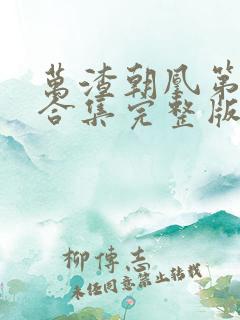 萬渣朝凰第
合集完整版
柳傳志
未经同意禁止转载